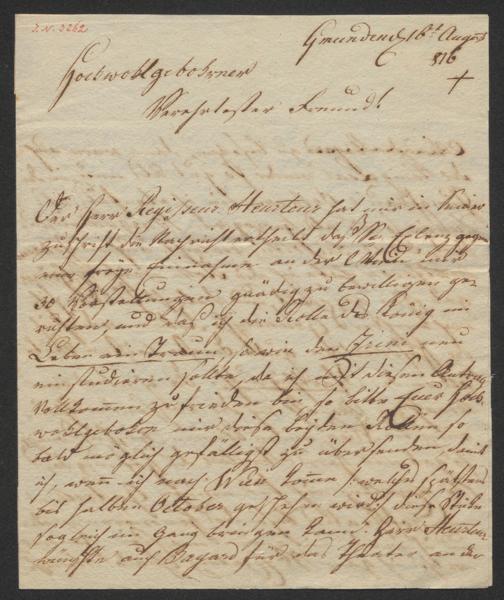 I. N. 3262
Gmunden d. 16t August
816
Hochwohlgebohrner
Verehrtester Freund!
Der Herr Regisseur Heurteur hat mir in seiner
zuschrift die Nachricht ertheilt daß Sr. gegen
eine freye Einnahme an der Wien mir
30 Vorstellungen gnädig zu bewilligen ge
ruhten, und daß ich die Rolle des König im
Leben ein Traum, so wie den neu
einstudieren sollte, da ich mit diesem Antrag
vollkommen zufrieden bin so bitte Euer Hoch
wohlgebohrn mir diese beyden Rollen so
bald möglich gefälligst zu übersenden, damit
ich, wenn ich nach Wien komme welches spätstens
bis halben October geschehen wird diese Stücke
sogleich in Gang bringen kann. Herr Heurteur
wünschte auch Bayard für das Theater an der